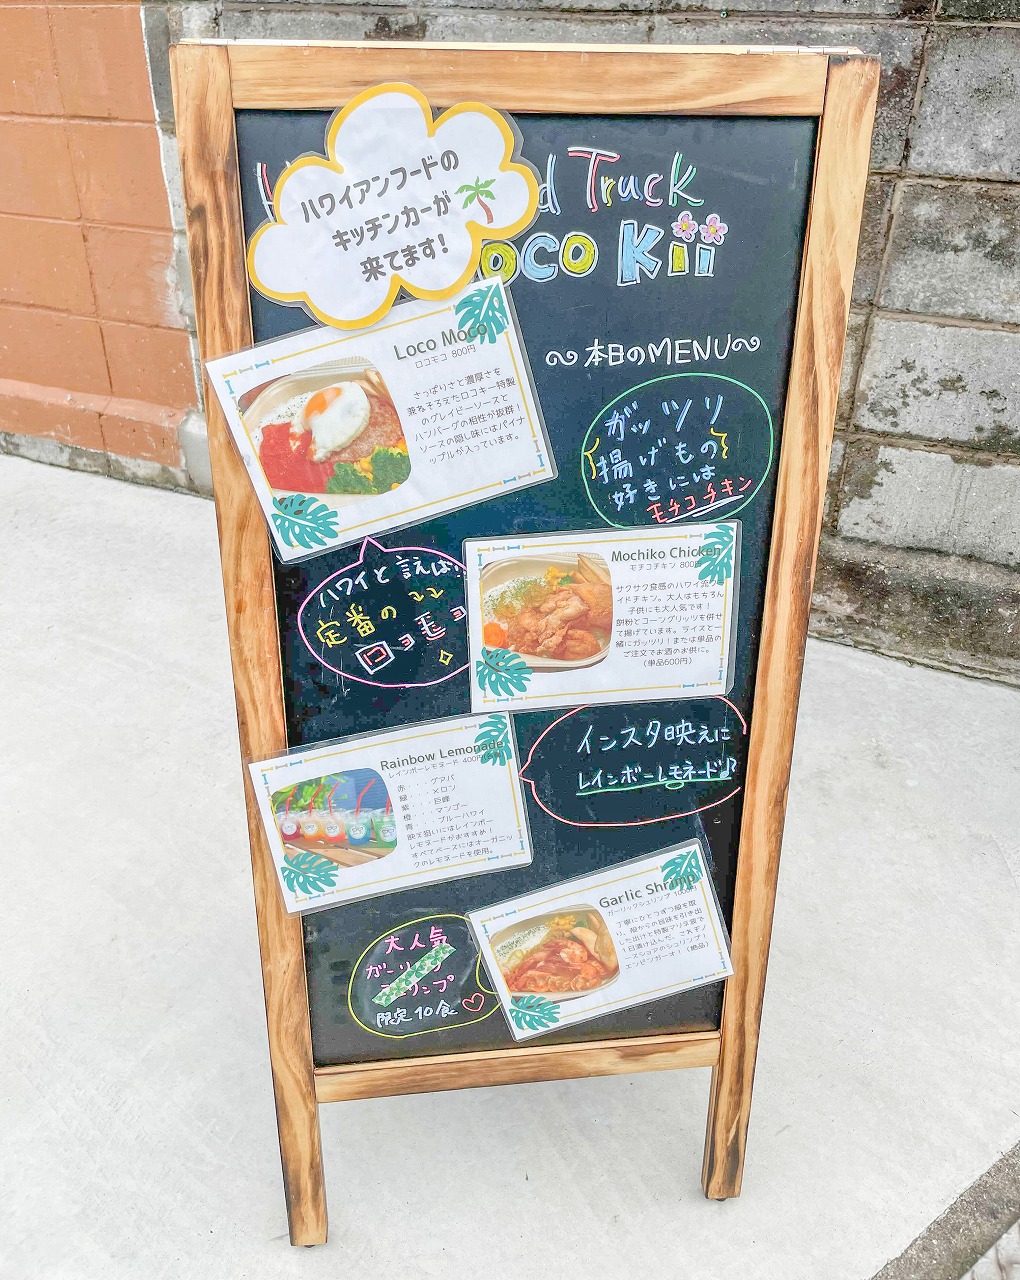 ハワイアンフードの
キッチンカーが
来てます!
Truck
oco Kii
～本日のMENU～
Loco Moco
ロコモコ 800円
さっぱりさと濃厚さを
兼ねそろえたロコキー特製
のグレイビーソースと
ハンバーグの相性が抜群!
ソースの隠し味にはパイナ
ップルが入っています。
ガッツリ
揚げもの
好きには
モチコチキン
ハワイと言えば!
定番の
ロコモコ
Mochiko Chicken
モチコチキン 800円
サクサク食感のハワイ流フラ
イドチキン。大人はもちろん
子供にも大人気です!
餅粉とコーングリッツを併せ
て揚げています。ライスと一
緒にガッツリ!または単品の
ご注文でお酒のお供に。
(単品600円)
インスタ映えに
レインボーレモネード♪
Rainbow Lemonade
レインボーレモネード 400円
赤・・・グアバ
緑・・・メロン
紫・・・巨峰
橙・・・マンゴー
青・・・ブルーハワイ
映え狙いにはレインボー
レモネードがおすすめ!
すべてベースにはオーガニッ
クのレモネードを使用。
Garlic Shrimp
ガーリックシュリンプ 1000円
丁寧にひとつずつ殻を取
り、殻からの旨味を引き出
した出汁と特製マリネ液で
1日漬け込んだ、これぞノ
ースショアのシュリンプ!
エンビンガーオ!(絶品)
大人気
ガーリック
シュリンプ
限定10食♡